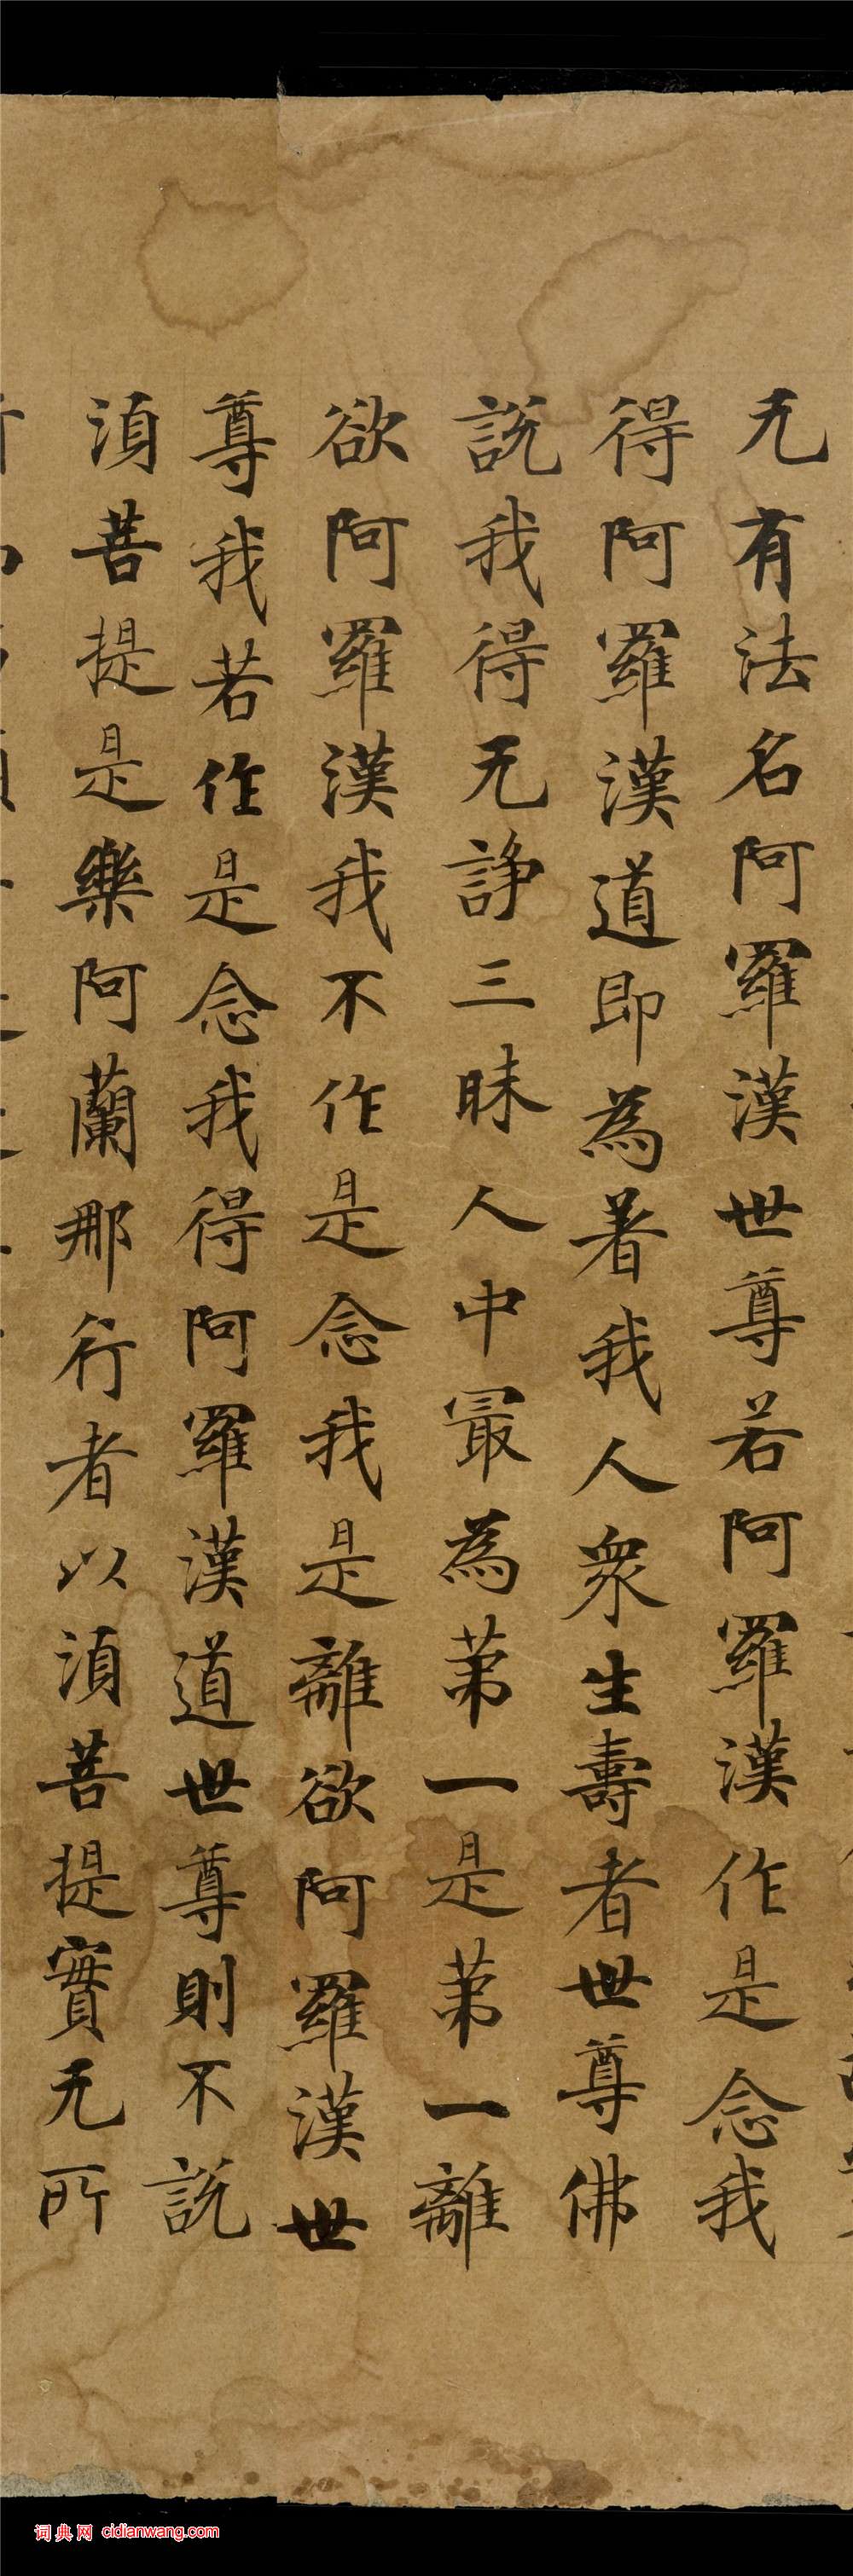 无有法名阿羅漢世尊若阿羅漢作是念我
得阿羅漢道即為著我人衆生壽者世尊佛
說我得无諍三昧人中冣為苐一是苐一離
欲阿羅漢我不作是念我是離欲阿羅漢世
尊我若作是念我得阿羅漢道世尊則不說
湏菩提是樂阿蘭那行者以湏菩提實无所
词典网 cidianwang.com